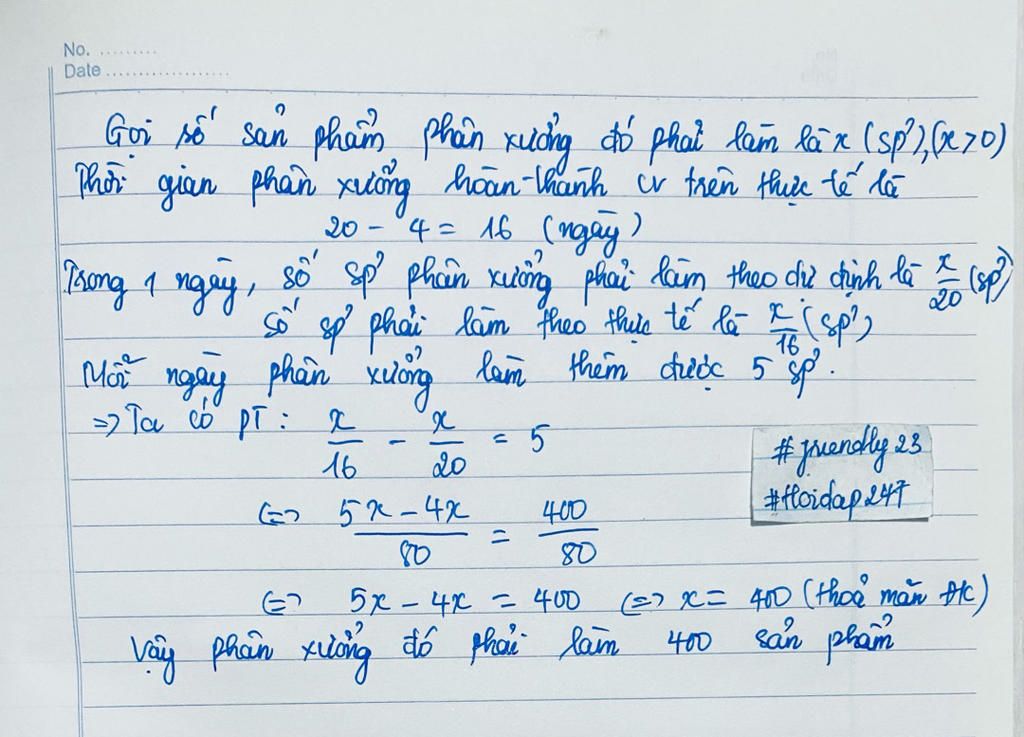 No. .........
Date ...................
Gọi số sản phẩm phân xưởng đó phải làm là x (sp), (x>0)
Thời gian phân xưởng hoàn thành cv trên thực tế là
20 - 4 = 16 (ngày)
Trong 1 ngày, số sp phân xưởng phải làm theo dự định là x/20 (sp)
số sp phải làm theo thực tế là x/16 (sp)
Mỗi ngày phân xưởng làm thêm được 5 sp.
=> Ta có PT: x/16 - x/20 = 5
<=> (5x - 4x)/80 = 400/80
<=> 5x - 4x = 400 <=> x = 400 (thoả mãn đk)
Vậy phân xưởng đó phải làm 400 sản phẩm
#friendly23
#Hoidap247